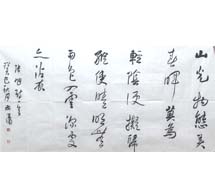 山光物態弄
春暉莫為
輕陰便擬歸
縱使晴明無
雨色入雲深處
亦沾衣
張旭詩一首